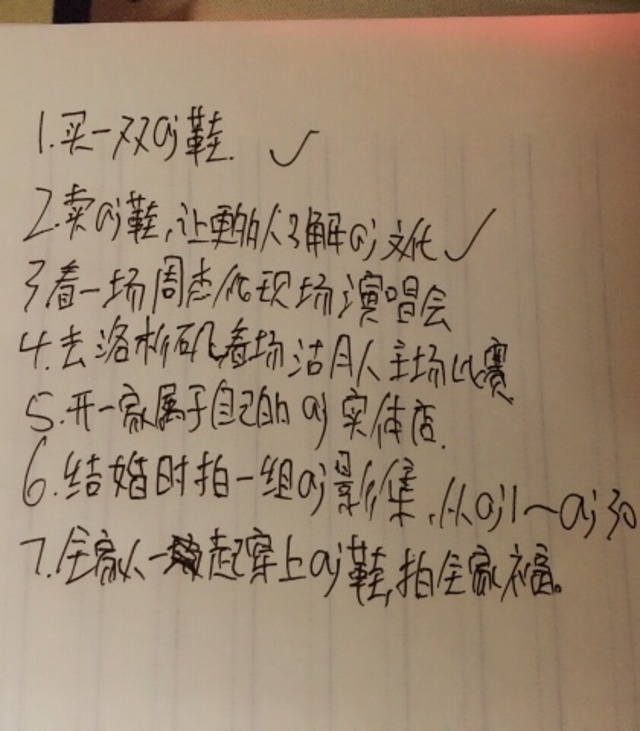 1.买一双aj鞋. ✓
2.卖aj鞋,让更多的人了解aj文化 ✓
3看一场周杰伦现场演唱会
4.去洛杉矶看场湖人主场比赛
5.开一家属于自己的aj实体店.
6.结婚时拍一组aj影集,从aj1~aj30
7.全家人一起穿上aj鞋,拍全家福。